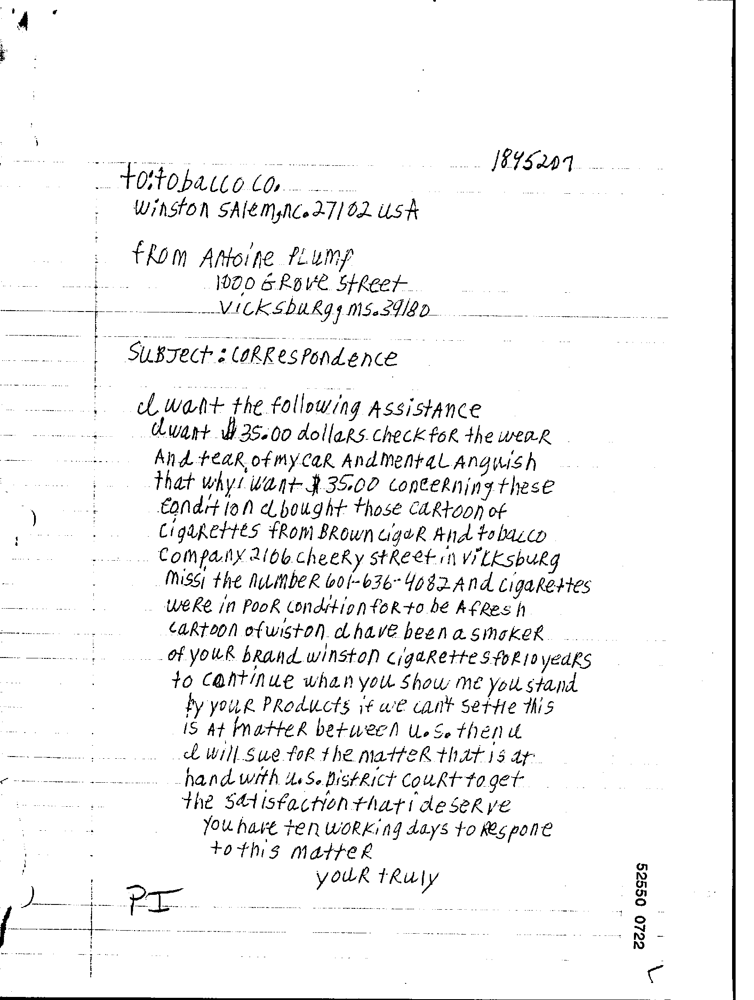 1845207
to:tobacco co.
Winston SAlem,nc.27102 USA
from Antoine Plump
1000 GRove StReet
Vicksburg, ms.39180
SUBJect: CORResPondence
I want the following AssistAnce
I want $35.00 dollaRs check foR the weaR
And teaR of my caR And mental Anguish
that why i want $35.00 conceRning these
condition I bought those caRtoon of
cigaRettes fRom BRown cigaR And tobacco
company 2106 cheeRy stReet in vicksburg
missi the numbeR 601-636-4082 And cigaRettes
weRe in PooR condition foR to be A fResh
caRtoon of wiston I have been a smokeR
of youR bRand winston cigaRettes foR 10 yeaRs
to continue whan you show me you stand
by youR PRoducts if we can't settle this
is At matteR between u.s. then u
I will sue foR the matteR that is at
hand with u.s. District couRt to get
the satisfaction that i deseRve
You have ten woRking days to Respone
to this matteR
youR tRuly
PI
52550 0722